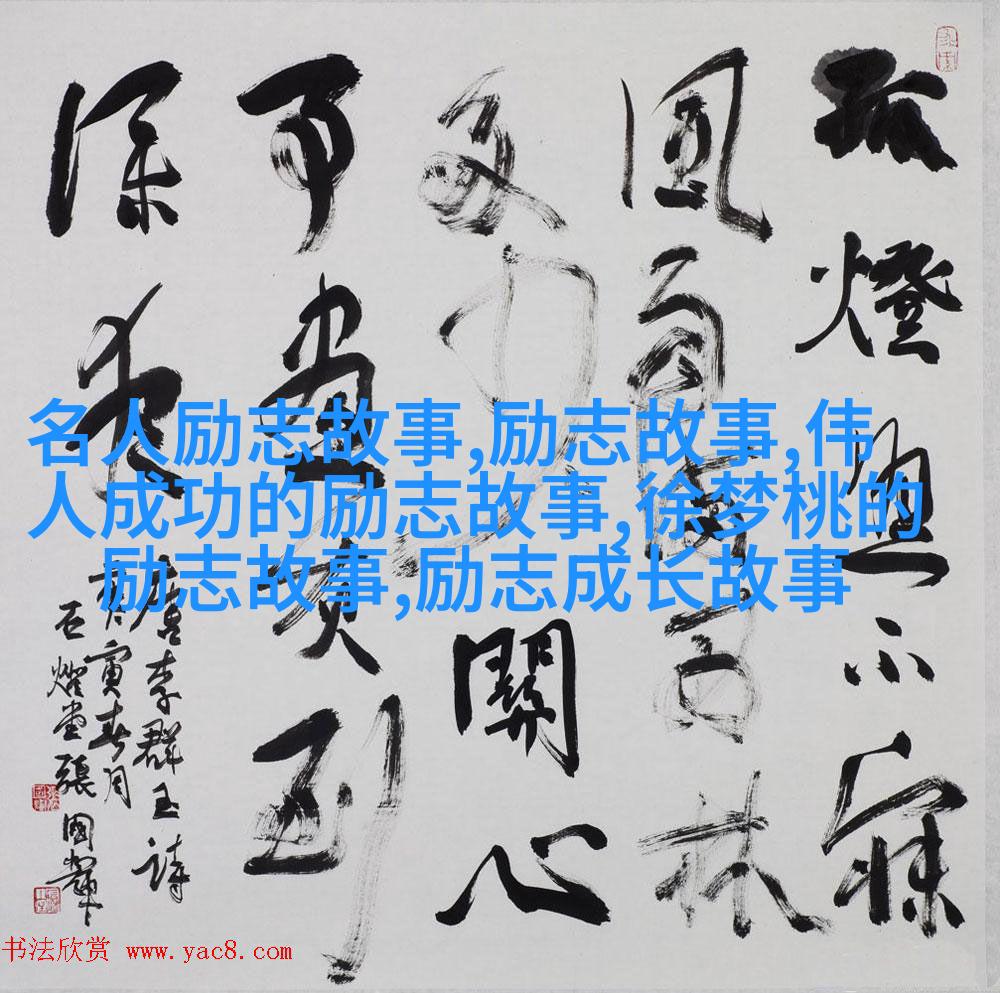 孤燈照不寐
風雨滿西林
多少關心
事書灰到
深夜
唐李群玉詩
庚寅春月
堂張國輝
名人励志故事,励志故事,伟
人成功的励志故事,徐梦桃的
励志故事,励志成长故事
书法欣赏 www.yac8.com